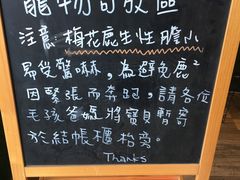 寵物寄放區
注意：梅花鹿生性膽小
易受驚嚇，為避免鹿²
因緊張而奔跑，請各位
毛孩爸媽將寶貝暫寄
於結帳櫃枱旁。
Thanks